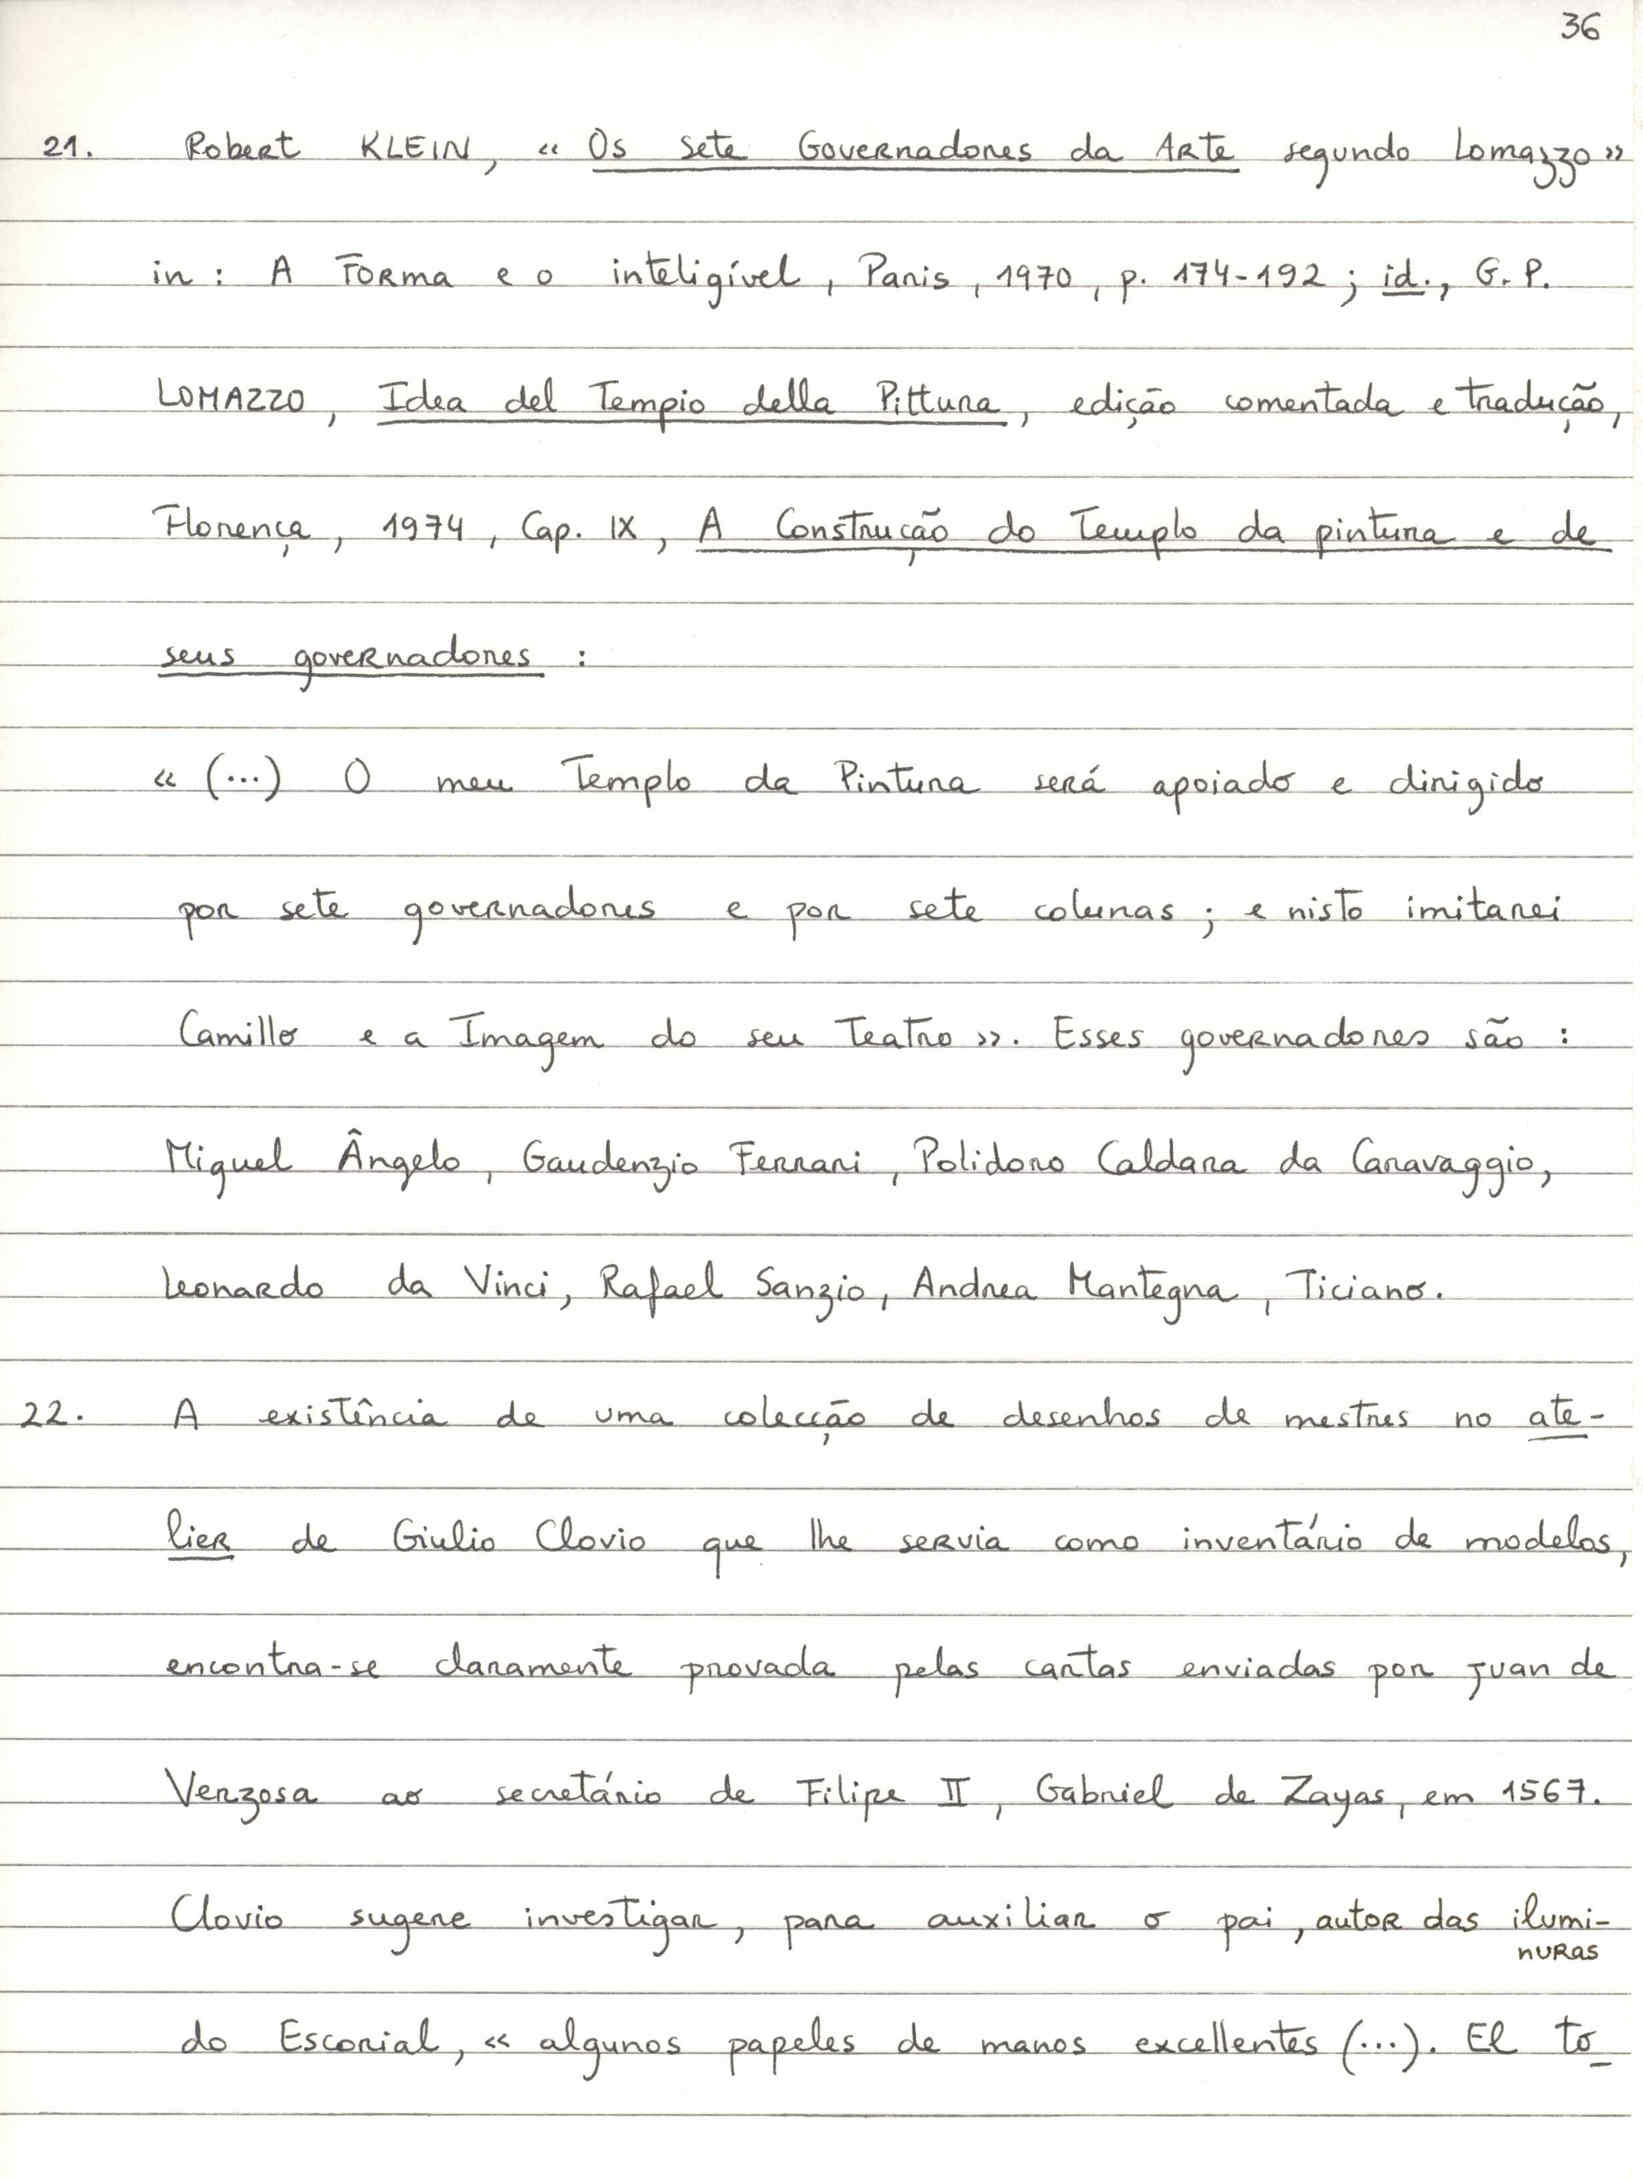 36
21. Robert KLEIN, « Os sete Governadores da Arte segundo Lomazzo »
in : A Forma e o inteligível, Paris, 1970, p. 174-192 ; id., G. P.
LOMAZZO, Idea del Tempio della Pittura, edição comentada e tradução,
Florença, 1974, Cap. IX, A Construção do Templo da pintura e de
seus governadores :
« (...) O meu Templo da Pintura será apoiado e dirigido
por sete governadores e por sete colunas ; e nisto imitarei
Camillo e a Imagem do seu Teatro ». Esses governadores são :
Miguel Ângelo, Gaudenzio Ferrari, Polidoro Caldara da Caravaggio,
Leonardo da Vinci, Rafael Sanzio, Andrea Mantegna, Ticiano.
22. A existência de uma colecção de desenhos de mestres no ate-
lier de Giulio Clovio que lhe servia como inventário de modelos,
encontra-se claramente provada pelas cartas enviadas por Juan de
Verzosa ao secretário de Filipe II, Gabriel de Zayas, em 1567.
Clovio sugere investigar, para auxiliar o pai, autor das ilumi-
nuras
do Escorial, « algunos papeles de manos excellentes (...). El to_